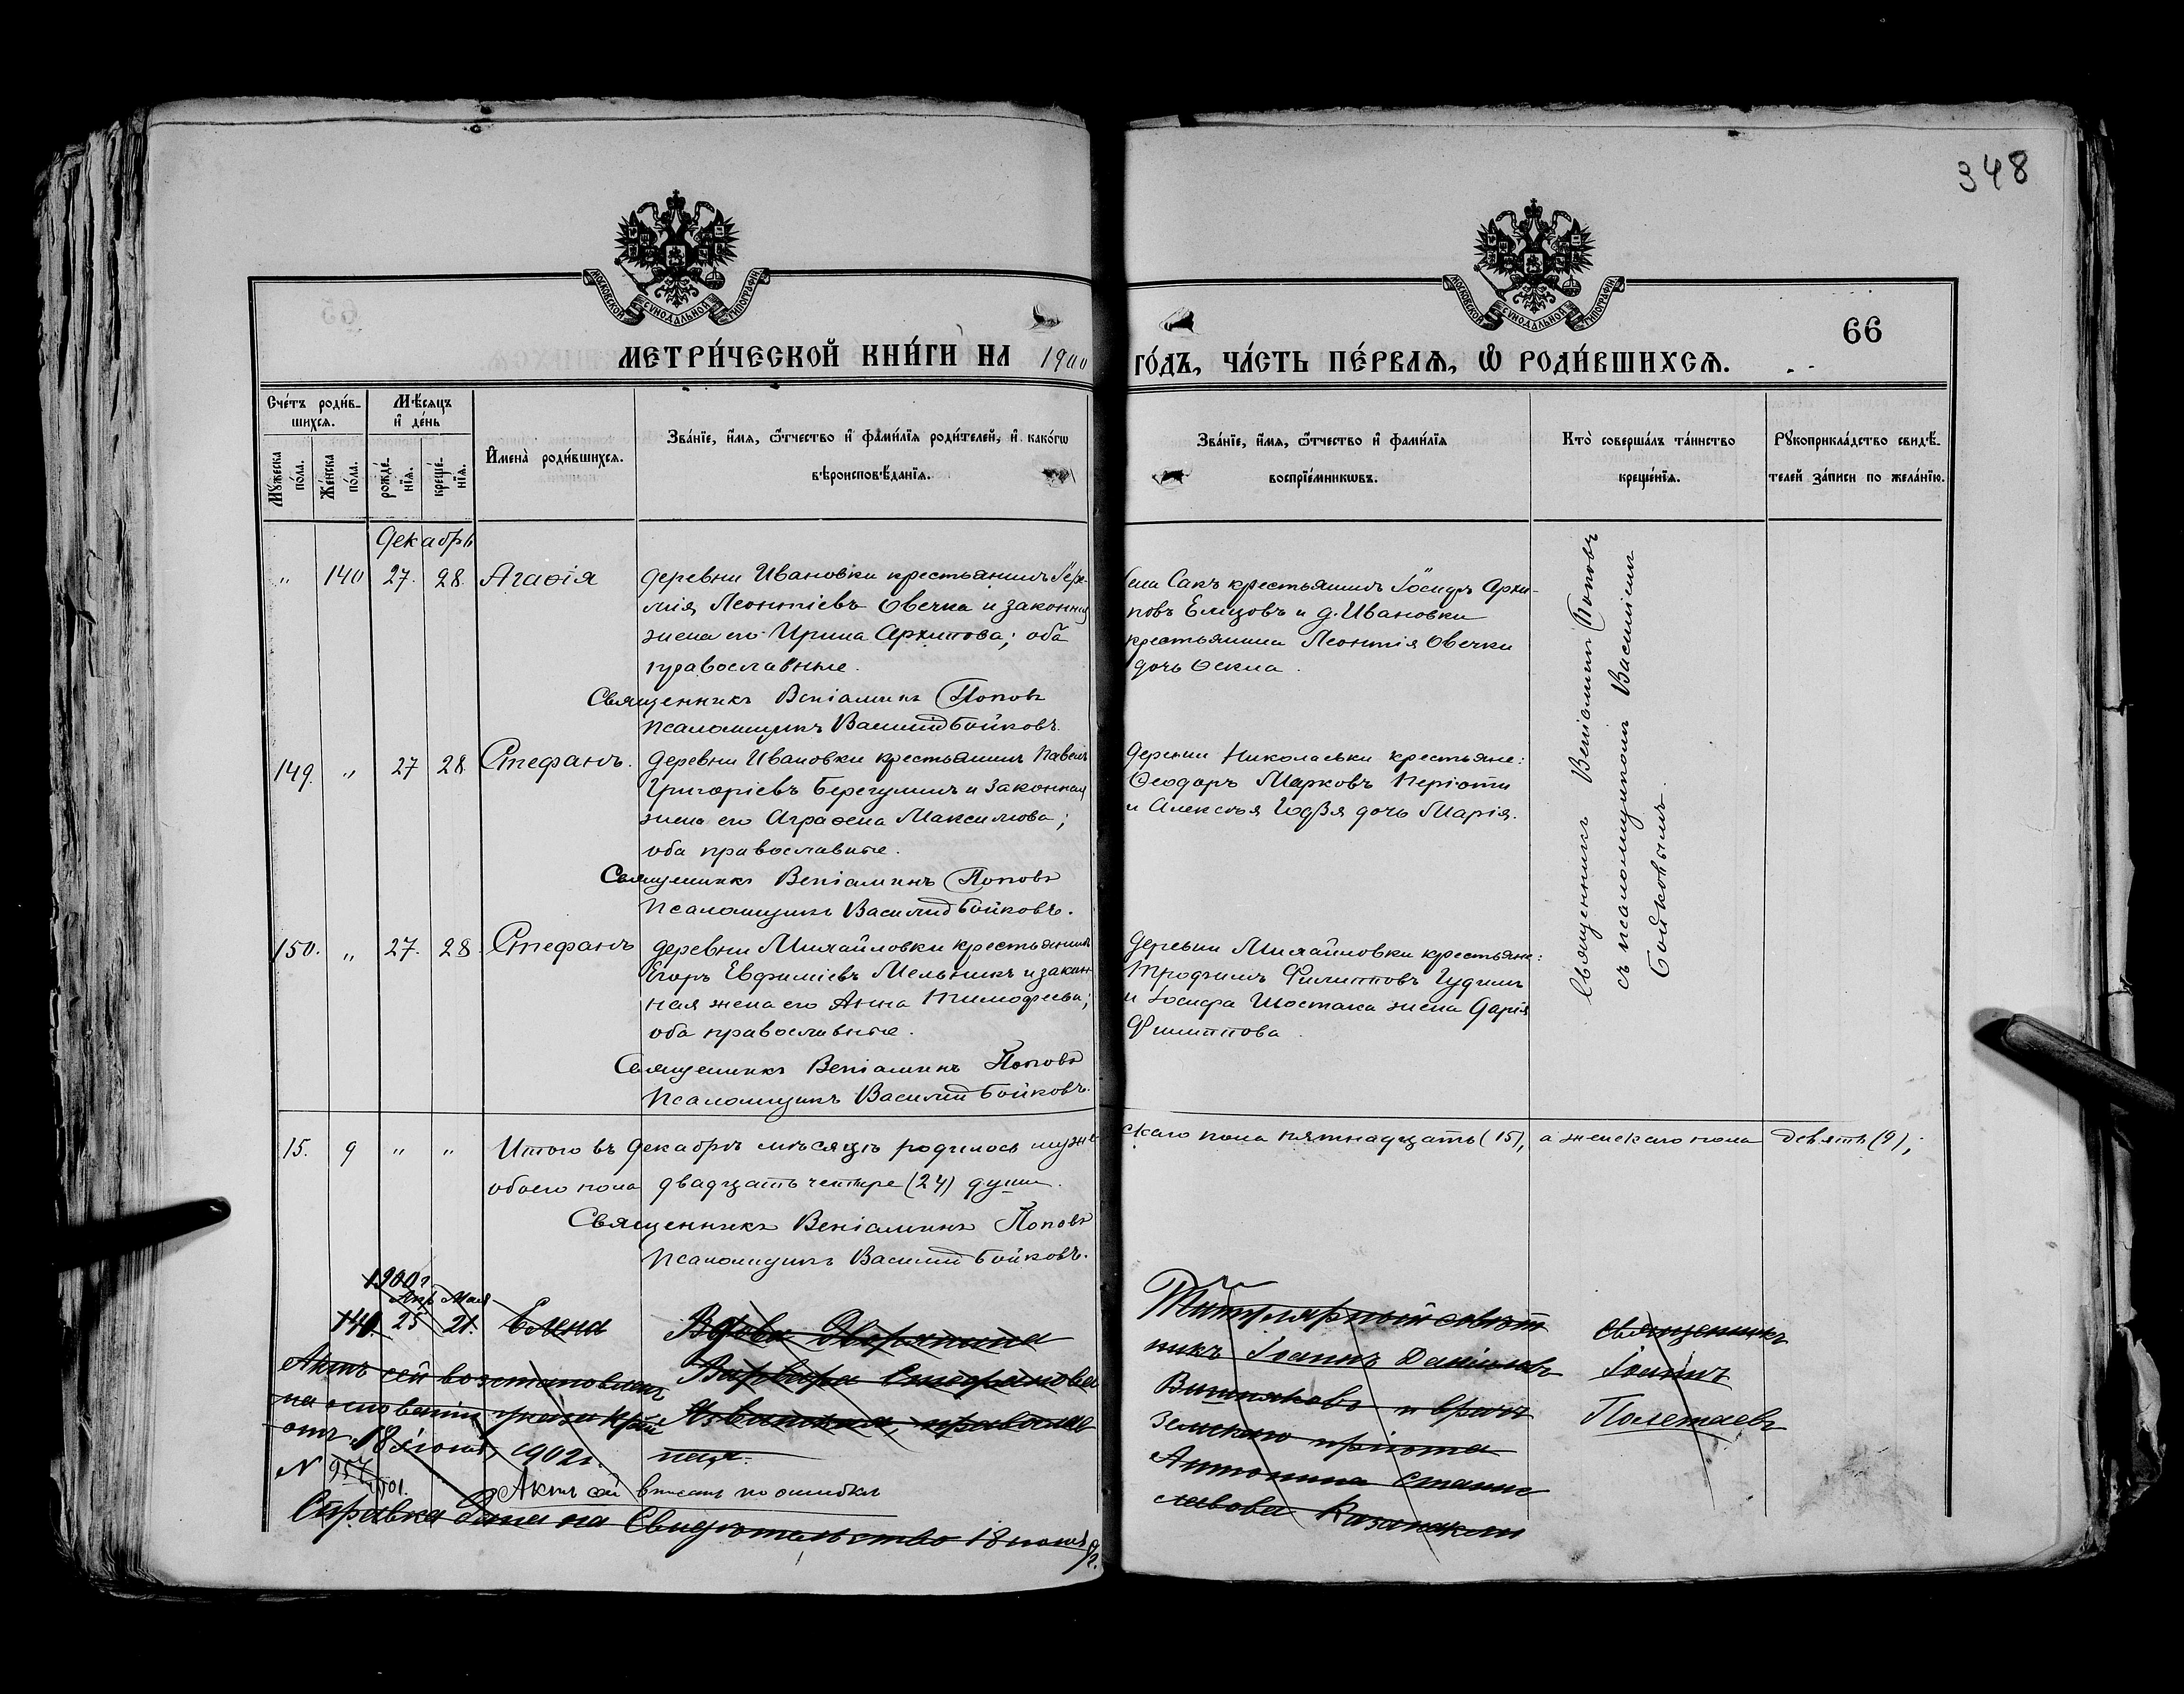 348
МОСКОВСКОЙ СѴНОДАЛЬНОЙ ТИПОГРАФІИ
МОСКОВСКОЙ СѴНОДАЛЬНОЙ ТИПОГРАФІИ
66
МЕТРИ́ЧЕСКОЙ КНИ́ГИ НА 1900 ГО́ДЪ, ЧА́СТЬ ПЕ́РВАѦ, Ѡ҆ РОДИ́ВШИХСѦ.
Сче́тъ роди́в-
шихсѧ.
Мꙋ́жеска по́ла.
Же́нска по́ла.
Мѣ́сѧцъ
и҆ де́нь
рожде́-
нїѧ.
креще́-
нїѧ.
И҆мена̀ роди́вшихсѧ.
Зва́нїе, и҆́мѧ, ѻ҆́тчество и҆ фами́лїѧ роди́телей, и҆ како́гѡ
вѣроисповѣ́данїѧ.
Зва́нїе, и҆́мѧ, ѻ҆́тчество и҆ фами́лїѧ
воспрїе́мникѡвъ.
Кто̀ соверша́лъ та́инство
креще́нїѧ.
Рꙋкоприкла́дство свидѣ́-
телей за́писи по жела́нїю.
Декабрь
" 140 27. 28. Агаѳія
деревни Ивановки крестьянинъ Іере-
мія Леонтіевъ Овечка и законная
жена его Ирина Архипова; оба
православные.
Священникъ Веніаминъ Поповъ
Псаломщикъ Василій Бойковъ.
Села Сакъ крестьянинъ Іосифъ Архи-
повъ Емцовъ и д. Ивановки
крестьянина Леонтія Овечки
дочь Ѳекла.
Священникъ Веніаминъ Поповъ
съ псаломщикомъ Василіемъ
Бойковымъ.
149. " 27 28 Стефанъ.
деревни Ивановки крестьянинъ Павелъ
Григоріевъ Берегулинъ и законная
жена его Аграѳена Максимова;
оба православные.
Священникъ Веніаминъ Поповъ
Псаломщикъ Василій Бойковъ.
Деревни Николаевки крестьяне:
Ѳеодоръ Марковъ
и Алексѣя дочь Марія.
150. " 27. 28. Стефанъ
деревни Михайловки крестьянинъ
Егоръ Евфиміевъ Мельникъ и закон-
ная жена его Анна Тимофеева;
оба православные.
Священникъ Веніаминъ Поповъ
Псаломщикъ Василій Бойковъ.
Деревни Михайловки крестьяне:
Трофимъ Филипповъ Гудимъ
и Іосифа Шостака жена Дарія
Филиппова.
15. 9 " " Итого въ Декабрѣ мѣсяцѣ родилось муже-
скаго пола пятнадцать (15), а женскаго пола девять (9),
обоего пола двадцать четыре (24) души.
Священникъ Веніаминъ Поповъ
Псаломщикъ Василій Бойковъ.
1900 г.
Апр Мая
140. 25 21. Елена
Вдова Дворянина
Варвара Стефанова
православ
ная.
Актъ сей возстановленъ
на основаніи указа
отъ 18 іюня 1902 г.
N 957
Актъ сей вписанъ по ошибкѣ
Справка дана на Свидѣтельство 18 іюня
Титулярный совѣт
никъ Іоаннъ Даніиловъ
Вишняковъ и врачъ
Земскаго пріюта
Антонина Станис
лавова Казанакли
Священникъ
Іоаннъ
Полетаевъ